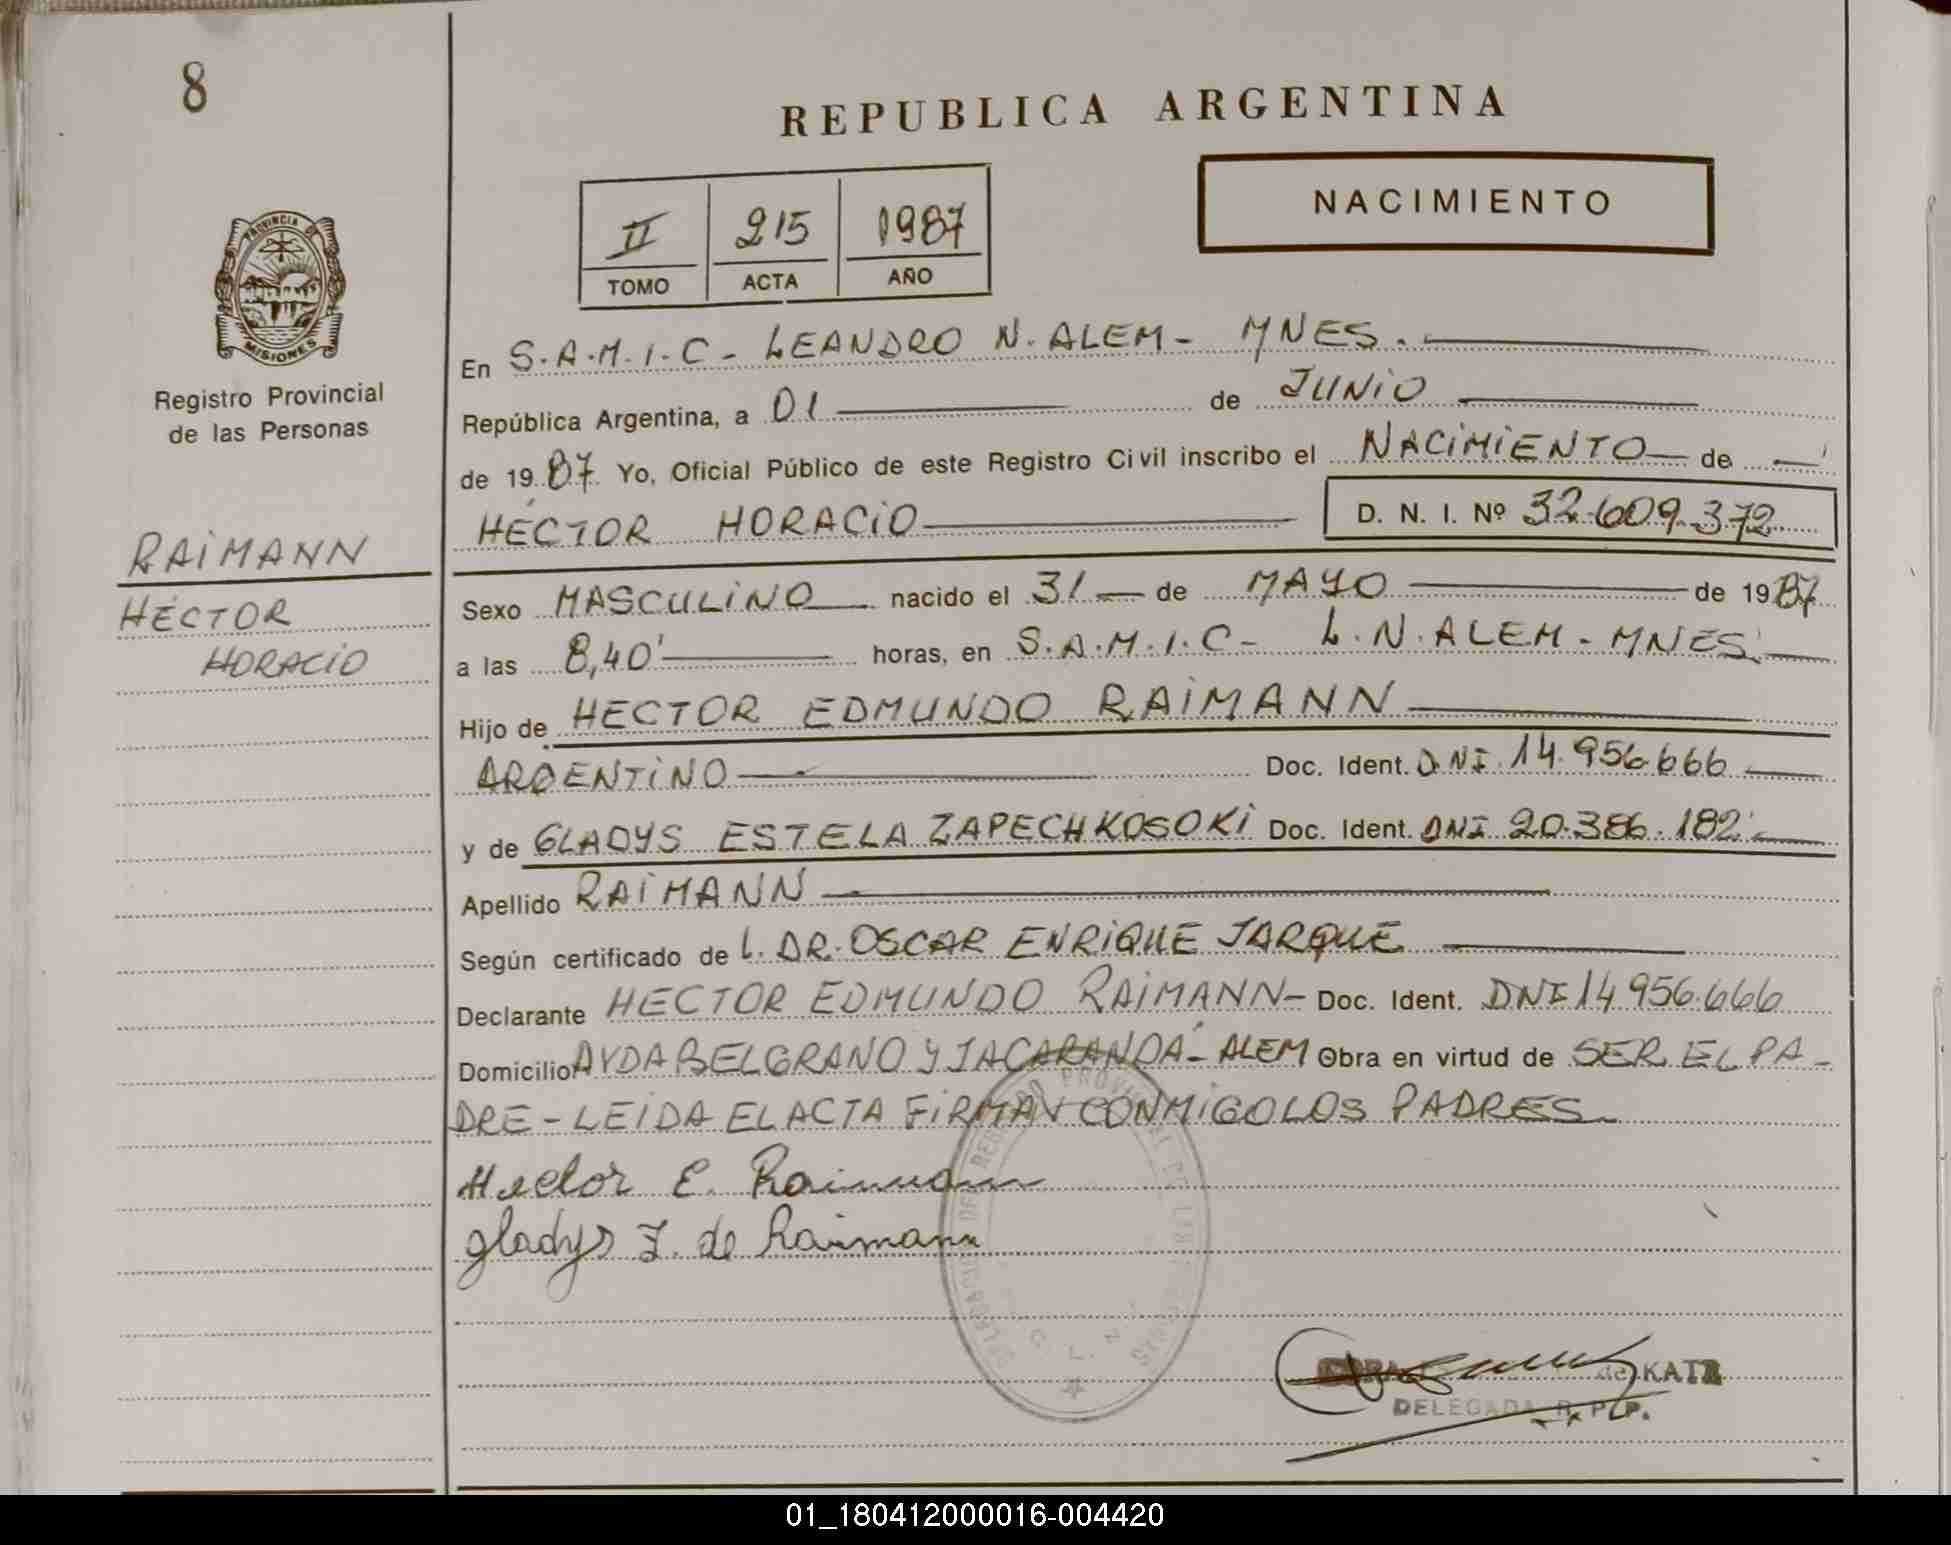 8
REPUBLICA ARGENTINA
NACIMIENTO
II 215 1987
TOMO ACTA AÑO
PROVINCIA DE
MISIONES
Registro Provincial
de las Personas
RAIMANN
HECTOR
HORACIO
En S.A.M.I.C - LEANDRO N. ALEM - MNES.
República Argentina, a 01 de JUNIO
de 1987 Yo, Oficial Público de este Registro Civil inscribo el NACIMIENTO de
HECTOR HORACIO D. N. I. Nº 32.609.372
Sexo MASCULINO nacido el 31 de MAYO de 1987
a las 8,40' horas, en S.A.M.I.C - L.N. ALEM - MNES.
Hijo de HECTOR EDMUNDO RAIMANN
ARGENTINO Doc. Ident. DNI. 14.956.666
y de GLADYS ESTELA ZAPECHKOSOKI Doc. Ident. DNI 20.386.182
Apellido RAIMANN
Según certificado de L. DR. OSCAR ENRIQUE JARQUE
Declarante HECTOR EDMUNDO RAIMANN - Doc. Ident. DNI 14.956.666
Domicilio AVDA BELGRANO Y JACARANDA - ALEM Obra en virtud de SER EL PA-
DRE - LEIDA EL ACTA FIRMAN CONMIGO LOS PADRES
Hector E. Raimann
Gladys Z. de Raimann
de KATZ
DELEGADA R. P. P.
01_180412000016-004420